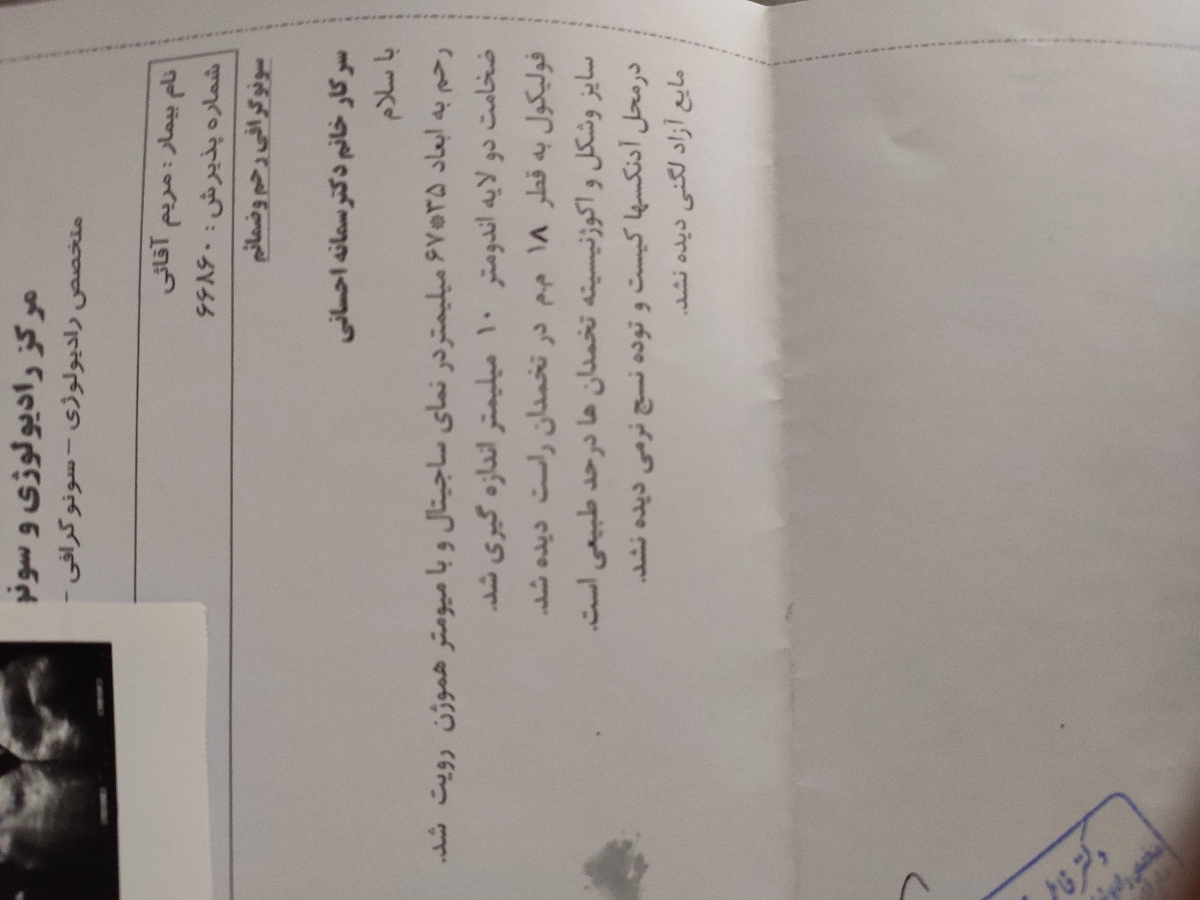 مرکز رادیولوژی و سونو
متخصص رادیولوژی - سونوگرافی -
نام بیمار : مریم آقائی
شماره پذیرش : ۶۶۸۶۰
سونوگرافی رحم وضمائم
سرکار خانم دکترسمانه احسانی
با سلام
رحم به ابعاد ۳۵*۶۷ میلیمتردر نمای ساجیتال و با میومتر هموژن رویت شد.
ضخامت دو لایه اندومتر ۱۰ میلیمتر اندازه گیری شد.
فولیکول به قطر ۱۸ م.م در تخمدان راست دیده شد.
سایز وشکل و اکوژنیسیته تخمدان ها درحد طبیعی است.
درمحل آدنکسها کیست و توده نسج نرمی دیده نشد.
مایع آزاد لگنی دیده نشد.
دکتر